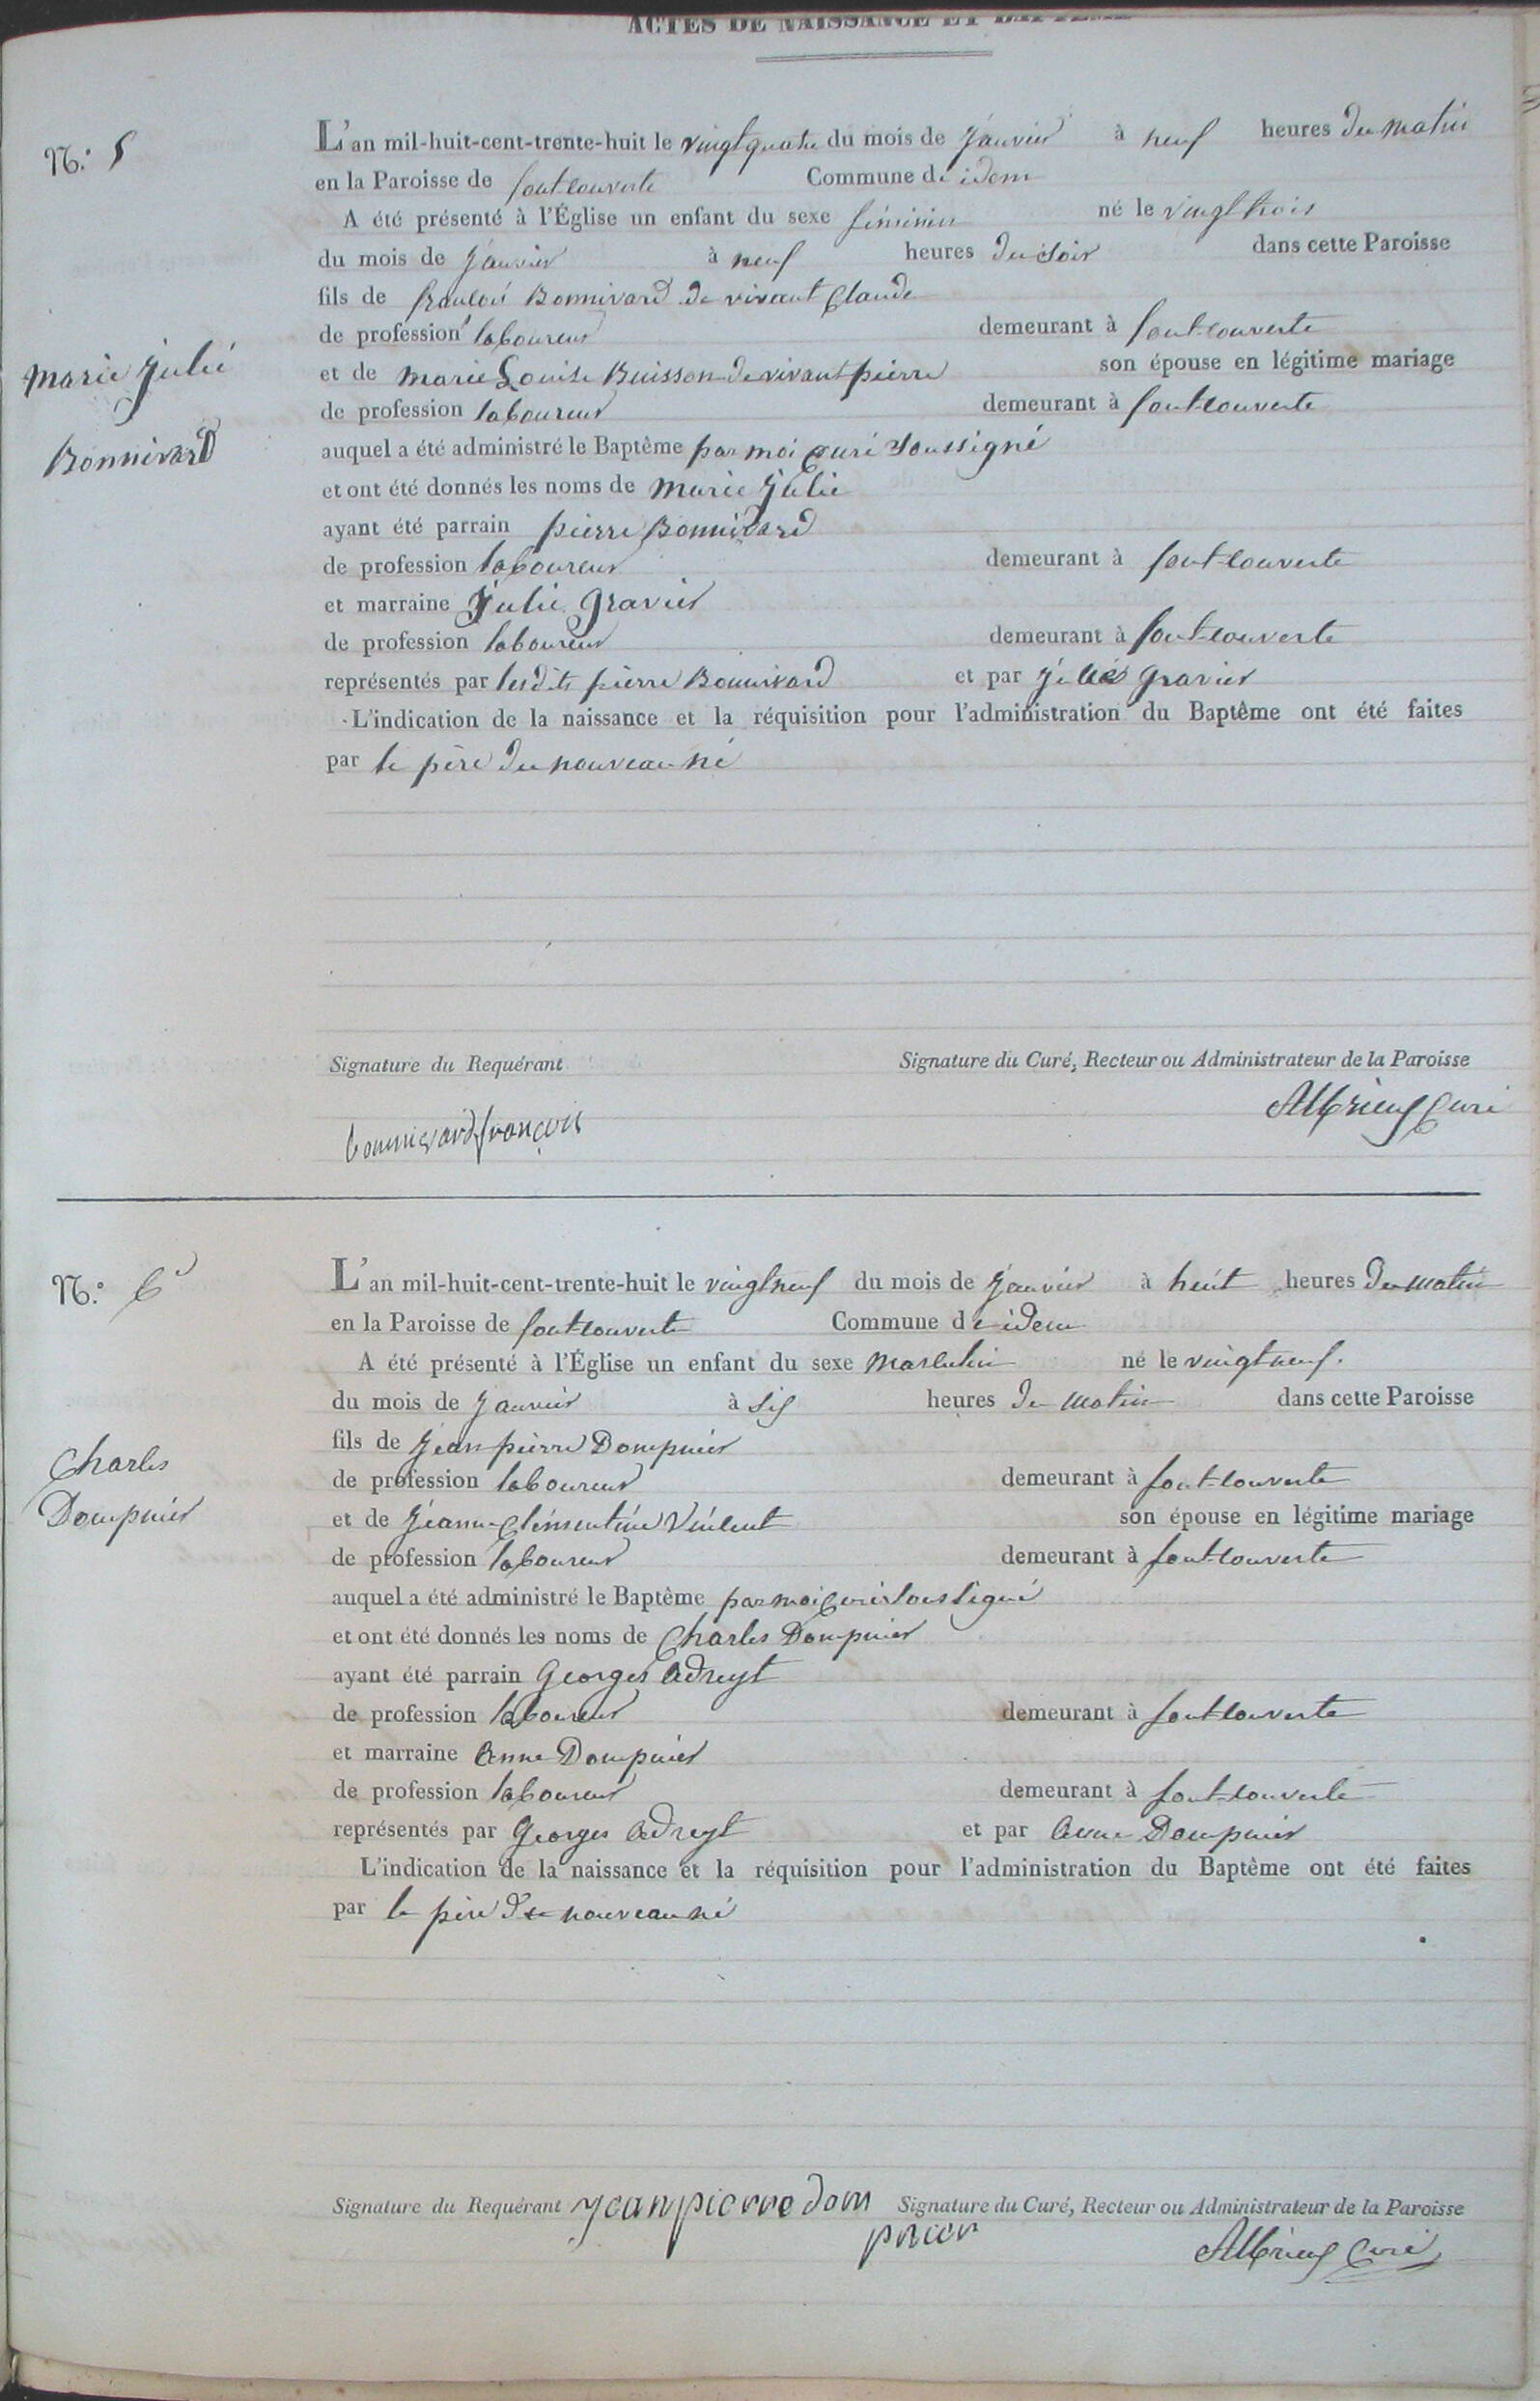 ACTES DE NAISSANCE ET BAPTEME
N.° 5
L'an mil-huit-cent-trente-huit le vingt quatre du mois de Janvier à neuf heures du matin
en la Paroisse de font-couverte Commune de idem
A été présenté à l'Église un enfant du sexe féminin né le vingt trois
du mois de Janvier à neuf heures du soir dans cette Paroisse
fils de françois Bonnivard de vivant Claude
de profession laboureur demeurant à font-couverte
marie julie
et de marie Louise Buisson de vivant pierre son épouse en légitime mariage
de profession laboureur demeurant à font-couverte
Bonnivard
auquel a été administré le Baptême par moi curé soussigné
et ont été donnés les noms de marie julie
ayant été parrain pierre Bonnivard
de profession laboureur demeurant à font-couverte
et marraine julie gravier
de profession laboureur demeurant à font-couverte
représentés par lesdits pierre Bonnivard et par julie gravier
L'indication de la naissance et la réquisition pour l'administration du Baptême ont été faites
par le père du nouveau né
Signature du Requérant Signature du Curé, Recteur ou Administrateur de la Paroisse
bonnivard françois curé
N.° 6
L'an mil-huit-cent-trente-huit le vingt neuf du mois de Janvier à huit heures du matin
en la Paroisse de font-couverte Commune de idem
A été présenté à l'Église un enfant du sexe masculin né le vingt neuf.
du mois de Janvier à six heures du matin dans cette Paroisse
fils de Jean pierre Dompnier
Charles
de profession laboureur demeurant à font-couverte
Dompnier
et de Jeanne Clémentine Vincent son épouse en légitime mariage
de profession laboureur demeurant à font-couverte
auquel a été administré le Baptême par moi curé soussigné
et ont été donnés les noms de Charles Dompnier
ayant été parrain Georges Adreyt
de profession laboureur demeurant à font-couverte
et marraine Anne Dompnier
de profession laboureur demeurant à font-couverte
représentés par Georges Adreyt et par Anne Dompnier
L'indication de la naissance et la réquisition pour l'administration du Baptême ont été faites
par le père du nouveau né
Signature du Requérant jean pierre dom Signature du Curé, Recteur ou Administrateur de la Paroisse
pnier curé